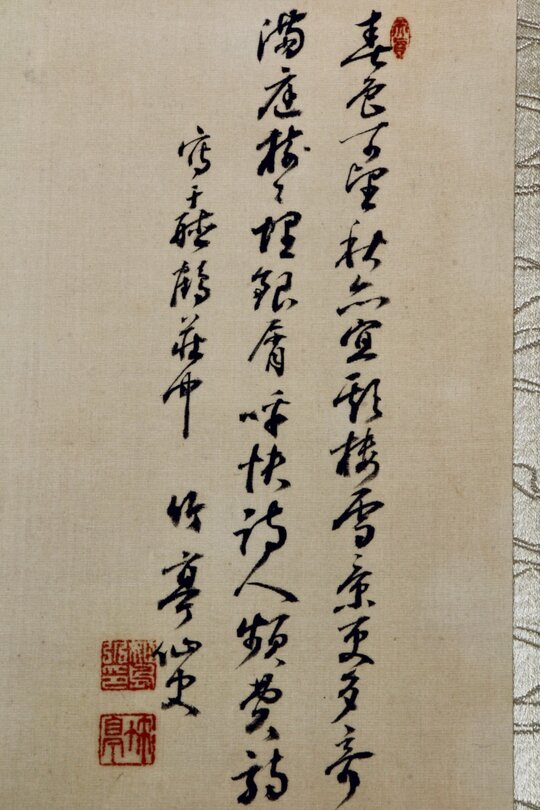 春色可望秋亦宜彩楼雪景更多奇
满庭樹々埋銀屑呼快詩人頻費詩
寫于聴鶴莊中 竹亭仙史